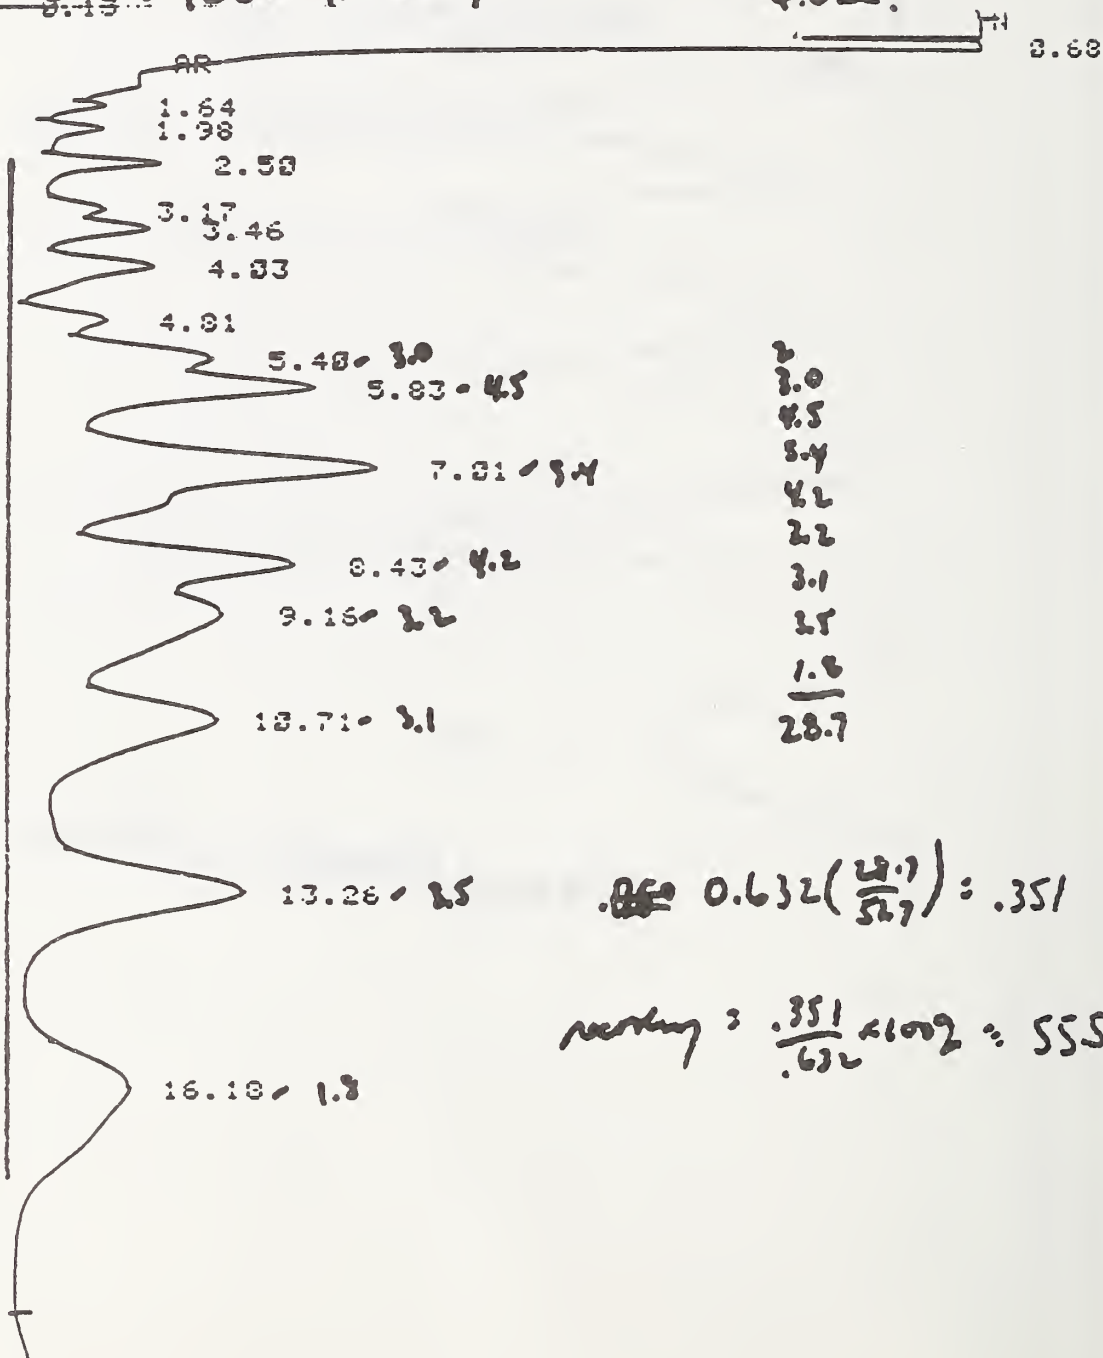 0.68
AR
1.64
1.98
2.50
3.17
3.46
4.03
4.81
5.40 - 3.0
5.83 - 4.5
7.01 - 5.4
8.43 - 4.2
9.16 - 3.2
10.71 - 3.1
13.26 - 3.5
16.18 - 1.8
3.0
4.5
5.4
4.2
2.2
3.1
3.5
1.8
28.7
0.632 ( 28.7 / 51.7 ) = .351
= .351 / .632 x 100% = 55.5